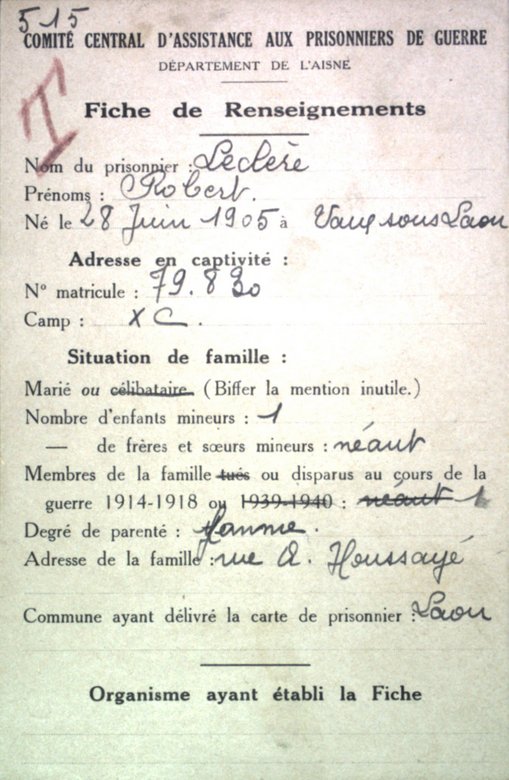 515
COMITÉ CENTRAL D'ASSISTANCE AUX PRISONNIERS DE GUERRE
DÉPARTEMENT DE L'AISNE
T
Fiche de Renseignements
Nom du prisonnier : Leclère
Prénoms : Robert.
Né le 28 Juin 1905 à Vaux sous Laon
Adresse en captivité :
N° matricule : 79.830
Camp : X C.
Situation de famille :
Marié ou célibataire. (Biffer la mention inutile.)
Nombre d'enfants mineurs : 1
— de frères et sœurs mineurs : néant
Membres de la famille tués ou disparus au cours de la
guerre 1914-1918 ou 1939-1940 : néant 1
Degré de parenté :
Adresse de la famille : rue A. Houssayé
Commune ayant délivré la carte de prisonnier : Laon
Organisme ayant établi la Fiche